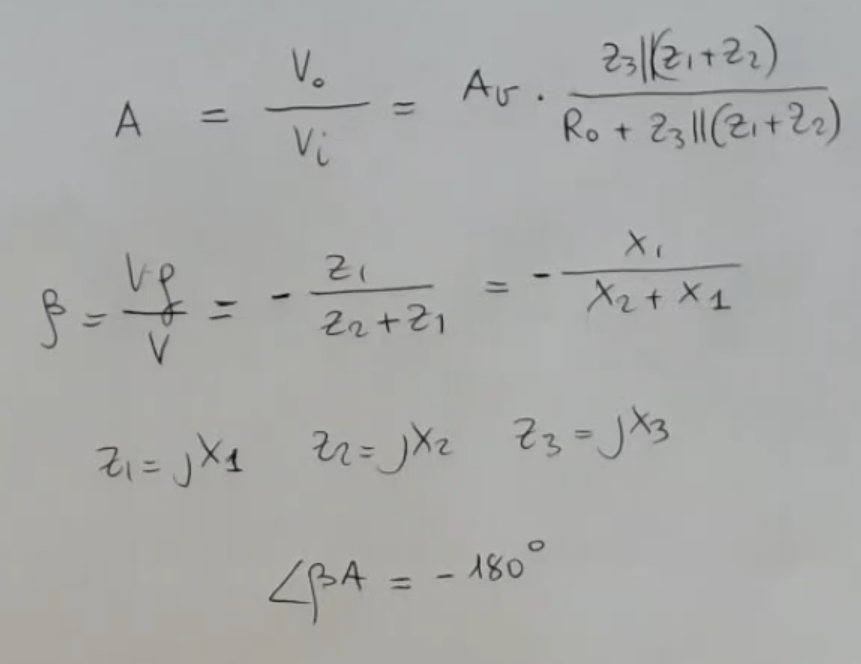 A = Vo/Vi = Av · Z3||(Z1+Z2) / Ro + Z3||(Z1+Z2)
β = Vf/V = - Z1/Z2+Z1 = - X1/X2+X1
Z1=jX1 Z2=jX2 Z3=jX3
∠βA = -180°